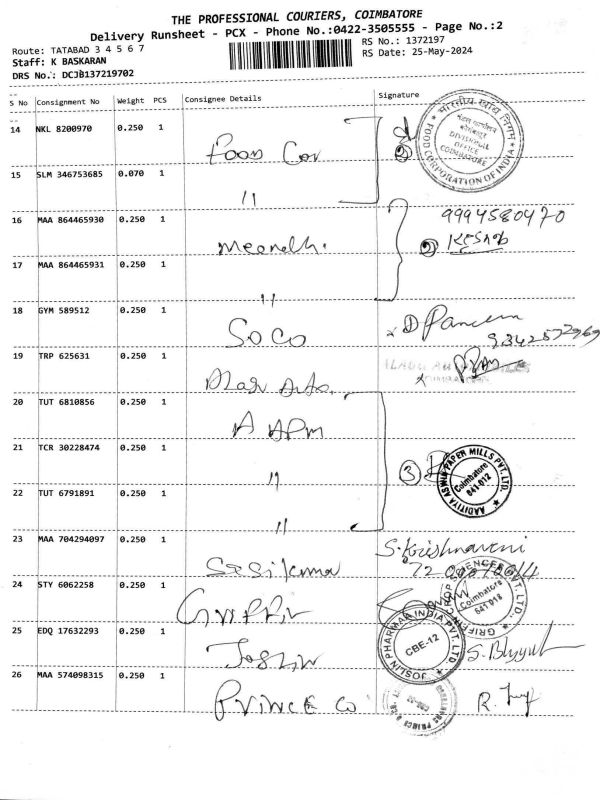 THE PROFESSIONAL COURIERS, COIMBATORE
Delivery Runsheet - PCX - Phone No.:0422-3505555 - Page No.:2
Route: TATABAD 3 4 5 6 7
RS No.: 1372197
Staff: K BASKARAN
RS Date: 25-May-2024
DRS No.: DC3B137219702
S No Consignment No Weight PCS Consignee Details Signature
14 NKL 8200970 0.250 1
Food Cor
भारतीय खाद्य निगम
DIVISIONAL OFFICE COIMBATORE
FOOD CORPORATION OF INDIA
15 SLM 346753685 0.070 1
"
16 MAA 864465930 0.250 1
9994580470
2
17 MAA 864465931 0.250 1
"
18 GYM 589512 0.250 1
SOCO
9342572969
19 TRP 625631 0.250 1
20 TUT 6810856 0.250 1
A APM
21 TCR 30228474 0.250 1
"
3
AADITIYA ASWIN PAPER MILLS PVT. LTD.
Coimbatore 641-012
22 TUT 6791891 0.250 1
"
23 MAA 704294097 0.250 1
Sasikumar
S. Krishnaveni
24 STY 6062258 0.250 1
Coimbatore 641-018
25 EDQ 17632293 0.250 1
Joslin
JOSLIN PHARMAA INDIA PVT. LTD.
CBE-12
26 MAA 574098315 0.250 1
PRINCE Co